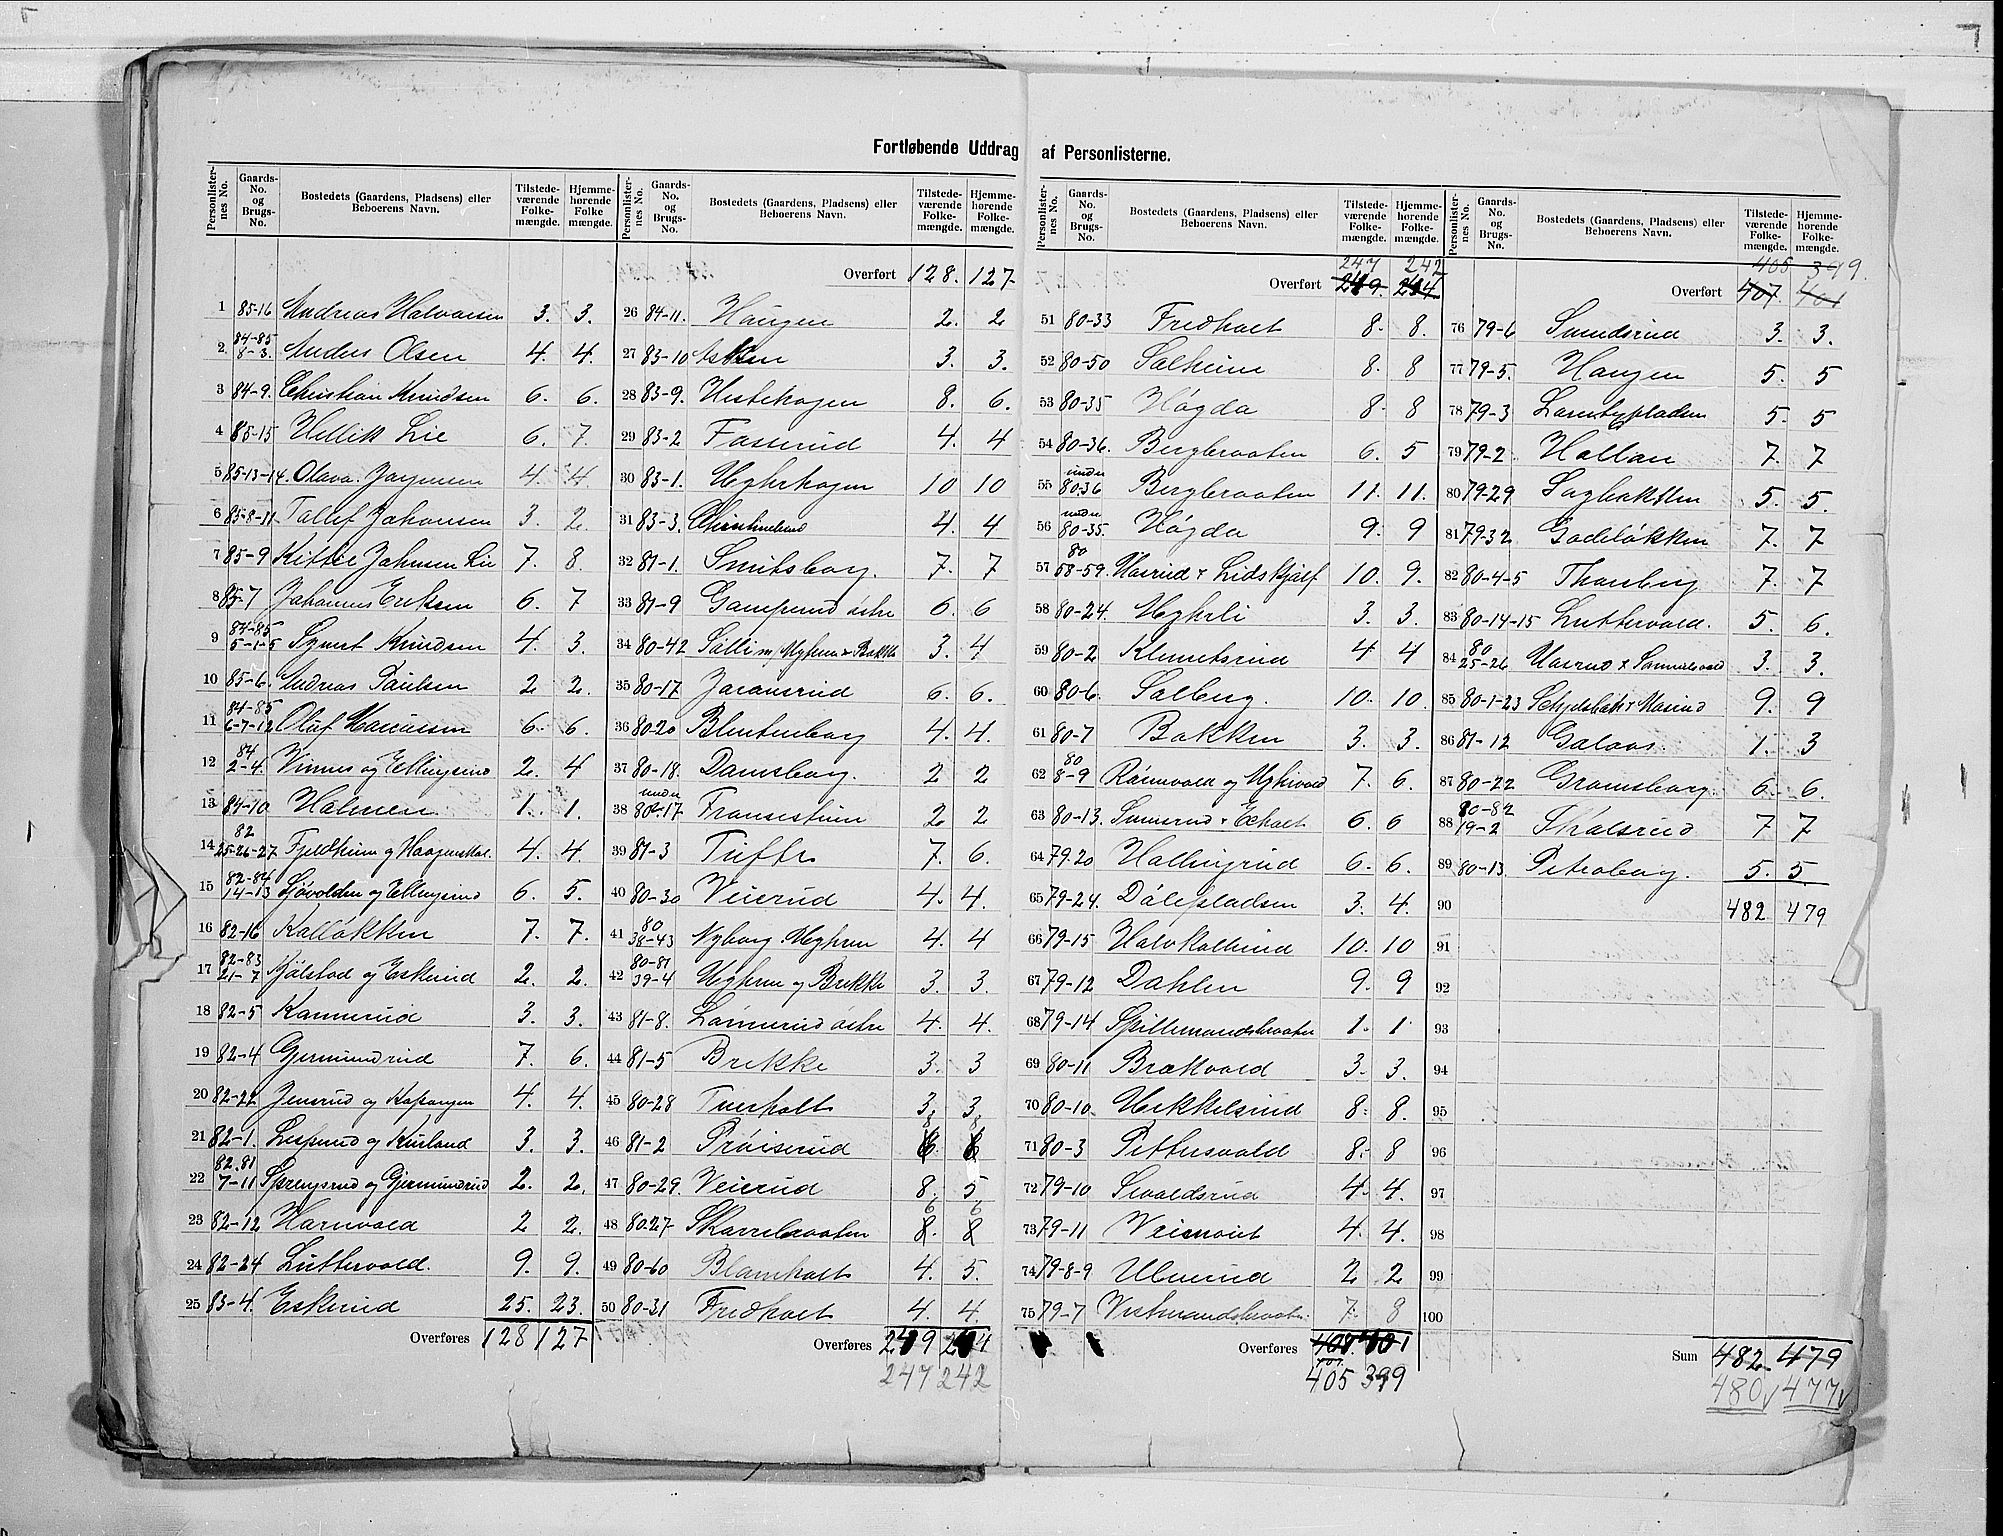 Fortløbende Uddrag af Personlisterne.
Personlister-nes No. Gaards-No. og Brugs-No. Bostedets (Gaardens, Pladsens) eller Beboerens Navn. Tilstede-værende Folke-mængde. Hjemme-hørende Folke mængde.
1 85-16 Andreas Halvorsen 3. 3.
2. 84-85 8-3. Anders Olsen 4. 4.
3 84-9. Christian Knudsen 6. 6.
4 85-15 Hellik Lie 6. 7.
5 85-13-14. Olava Jørgensen 4. 4
6 85-8-11 Tollef Johansen 3. 2.
7 85-9 Kittil Johnsen Lie 7. 8.
8 85-7 Johannes Eriksen 6. 7
9 84-85 5-1-5 Syvert Knudsen 4. 3.
10 85-6. Andreas Paulsen 2 2.
11 84-85 6-7-12 Oluf 6. 6.
12 84 2-4. Vinnes og Ellingsrud 2. 4
13 84-10 Holmen 1. 1.
14 82 25-26-27 Fjeldheim og 4. 4.
15 82-84 14-13 Sjøvolden og Ellingsrud 6. 5.
16 82-16 Kalløkken 7. 7.
17 82-83 21-7 Kjølstad og Eskerud 2. 2.
18 82-5 Kannerud 3. 3.
19 82-4 Germundrud 7. 6.
20 82-22 Jensrud og Kopangen 4. 4.
21 82-1. Lesperud og 3. 3.
22 82.81 7-11 Sprengsrud og Gjermundrud 2. 2.
23 82-12 Harevold 2 2.
24 82-24 Luttervold. 9. 9.
25 83-4. Eskerud 25. 23.
Overføres 128 127
Personlister-nes No. Gaards-No. og Brugs-No. Bostedets (Gaardens, Pladsens) eller Beboerens Navn. Tilstede-værende Folke-mængde. Hjemme-hørende Folke-mængde.
Overført 128. 127.
26 84-11. Haugen 2. 2
27 83-10 Asken 3. 3.
28 83-9. Hestehagen 8. 6.
29 83-2 Fosserud 4. 4
30 83-1. Myhrhagen 10 10
31 83-3. Christinelund 4. 4
32 81-1. Smitsborg. 7. 7
33 81-9 Gamperud østre 6. 6
34 80-42 Solli m/ Myhren & Bakke 3. 4
35 80-17 Joransrud 6. 6.
36 80-20 Blentenborg 4. 4.
37 80-18. Damsborg. 2 2
38 under 80-17 Fransestuen 2 2
39 81-3 Tufte 7. 6.
40 80-30 Veierud 4. 4.
41 80 38-43 Nyborg Myhren 4. 4
42 80-81 39-4 Myhren og Brekke 3. 3.
43 81-8. Lonnerud østre 4. 4.
44 81-5 Brekke 3. 3
45 80-28 Tuerholt 3 3
46 81-2 Prøiserud 8 6. 8 6
47 80-29. Veierud 8. 5
48 80-27 Skarrebraaten 6 8. 6 8
49 80-60 Blomholt 4. 5.
50 80-31 Fredholt 4. 4.
Overføres 249 244
247 242
Personlister-nes No. Gaards-No. og Brugs-No. Bostedets (Gaardens, Pladsens) eller Beboerens Navn. Tilstede-værende Folke-mængde. Hjemme-hørende Folke-mængde.
247 242
Overført 249. 244
51 80-33 Fredholt 8. 8.
52 80-50 Solheim 8. 8
53 80-35 Høgda 8. 8
54 80-36. Bergbraaten 6. 5
55 under 80-36 Bergbraaten 11. 11.
56 under 80-35. Høgda 9. 9
57 80 58-59. Aasrud & Lidskjalf 10. 9.
58 80-24. Myhrli 3. 3.
59 80-2 Klemetsrud 4 4
60 80-6. Solberg. 10. 10.
61 80-7 Bakken 3. 3.
62 80 8-9 og Myhrvold 7. 6.
63 80-13. & Ekholt 6. 6
64 79.20 Hallingrud 6. 6.
65 79-24. Dølepladsen 3. 4.
66 79-15 Halvkallerud 10. 10
67 79-12 Dahlen 9. 9
68 79-14 Spillemandsbraaten 1. 1
69 80-11 Brækvold 3. 3.
70 80-10. Mikkelsrud 8. 8.
71 80-3 Pettersvold 8. 8
72 79-10 Sevaldsrud 4. 4.
73 79-11 Veimoiet 4. 4.
74 79-8-9 Ulverud 2 2
75 79-7 Vestmandsbraaten. 7. 8
Overføres 408. 401
407.
405 399
Personlister-nes No. Gaards-No. og Brugs-No. Bostedets (Gaardens, Pladsens) eller Beboerens Navn. Tilstede-værende Folke-mængde. Hjemme-hørende Folke-mængde.
405 399.
Overført 407. 401
76 79-6 3. 3.
77 79-5. Haugen 5. 5
78 79-3 5. 5
79 79-2 Hallan 7. 7
80 79-29 Sagbakken 5. 5.
81 79-32 Godeløkken 7. 7
82 80-4-5 Thorsberg 7. 7
83 80-14-15 Luttervold. 5. 6.
84 80 25-26 Aasrud & 3. 3.
85 80-1-23 & Aasrud 9. 9
86 81-12 Solaas. 1. 3
87 80-22 Gramsborg. 6. 6.
88 80-82 19-2 Skalsrud 7 7
89 80-13 Petersborg. 5. 5.
90 482 479
91
92
93
94
95
96
97
98
99
100
Sum 482 479
480 477